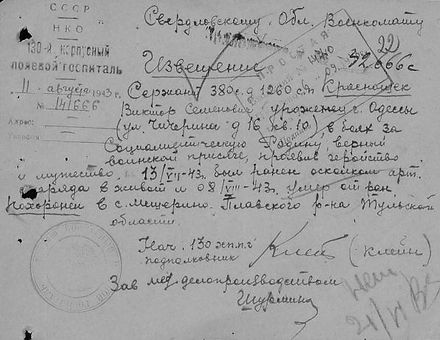 СССР
НКО
130-й корпусный
полевой госпиталь
11 августа 1943 г.
№ 141666
Адрес:
Свердловскому Обл. Военкомату
Извещение
32666с
22)
ПРОСТАЯ
Сержант 380 с.д 1260 сп Красношек
Виктор Семенович уроженец г. Одессы
(ул Чичерина д 16 кв. 10) в боях за
Социалистическую Родину, верный
воинской присяге, проявив геройство
и мужество 13/VII-43г. был ранен осколком арт.
снаряда в живот и 08/VIII-43г. умер от ран.
Похоронен в с. Мещерино. Плавского р-на Тульской
области.
Нач. 130 хппг
подполковник
(Клейн)
Зав мед делопроизводством
Шурмина